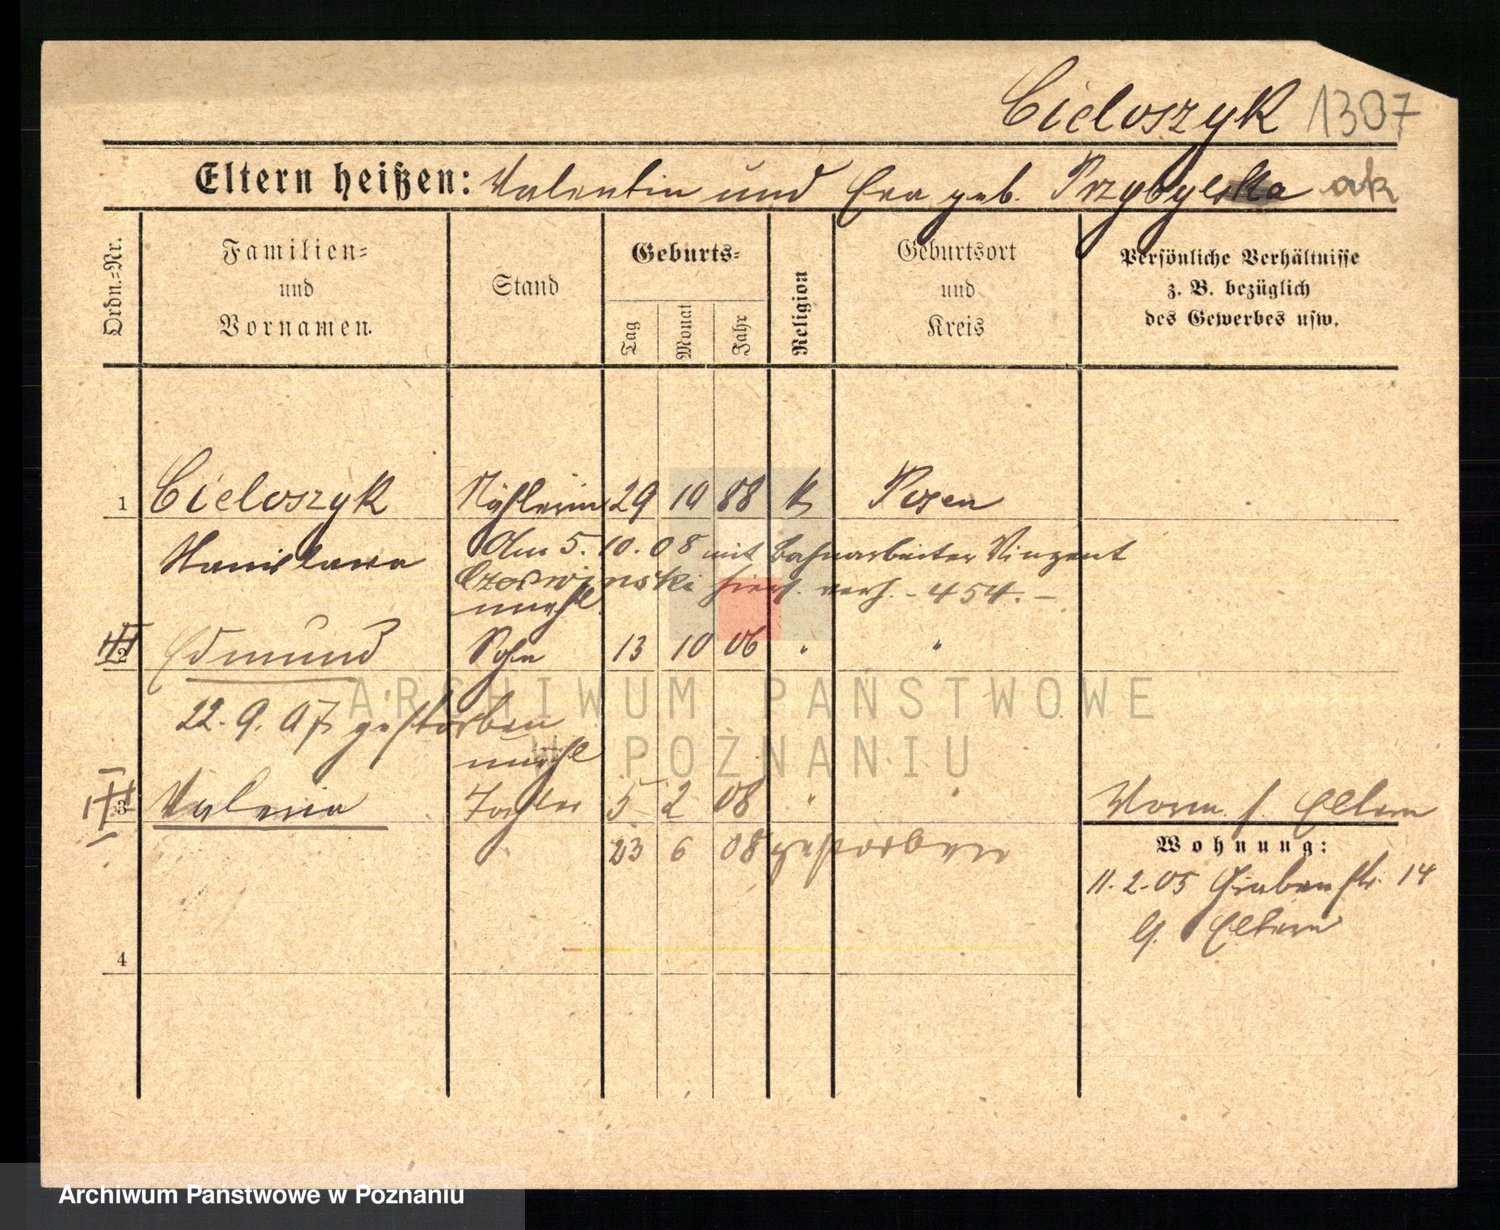 Cieloszyk 1307
Eltern heißen: Valentin und Eva geb. Przybylska ak
Ordn.-Nr.
Familien-
und
Vornamen.
Stand
Geburts-
Tag
Monat
Jahr
Religion
Geburtsort
und
Kreis
Persönliche Verhältnisse
z. B. bezüglich
des Gewerbes usw.
1 Cieloszyk Näherin 29 10 88 k Posen
Stanislawa Am 5. 10. 08 mit Bahnarbeiter Vinzent
hier verh. - 454. -
unehl.
2 Edmund Sohn 13 10 06 " "
22. 9. 07 gestorben
unehl
3 Valeria Tochter 5 2 08 " "
23 6 08 gestorben
Vorm. s. Eltern
Wohnung:
11.2.05 Grabenstr. 14
b. Eltern
4
ARCHIWUM PAŃSTWOWE
W POZNANIU
Archiwum Państwowe w Poznaniu